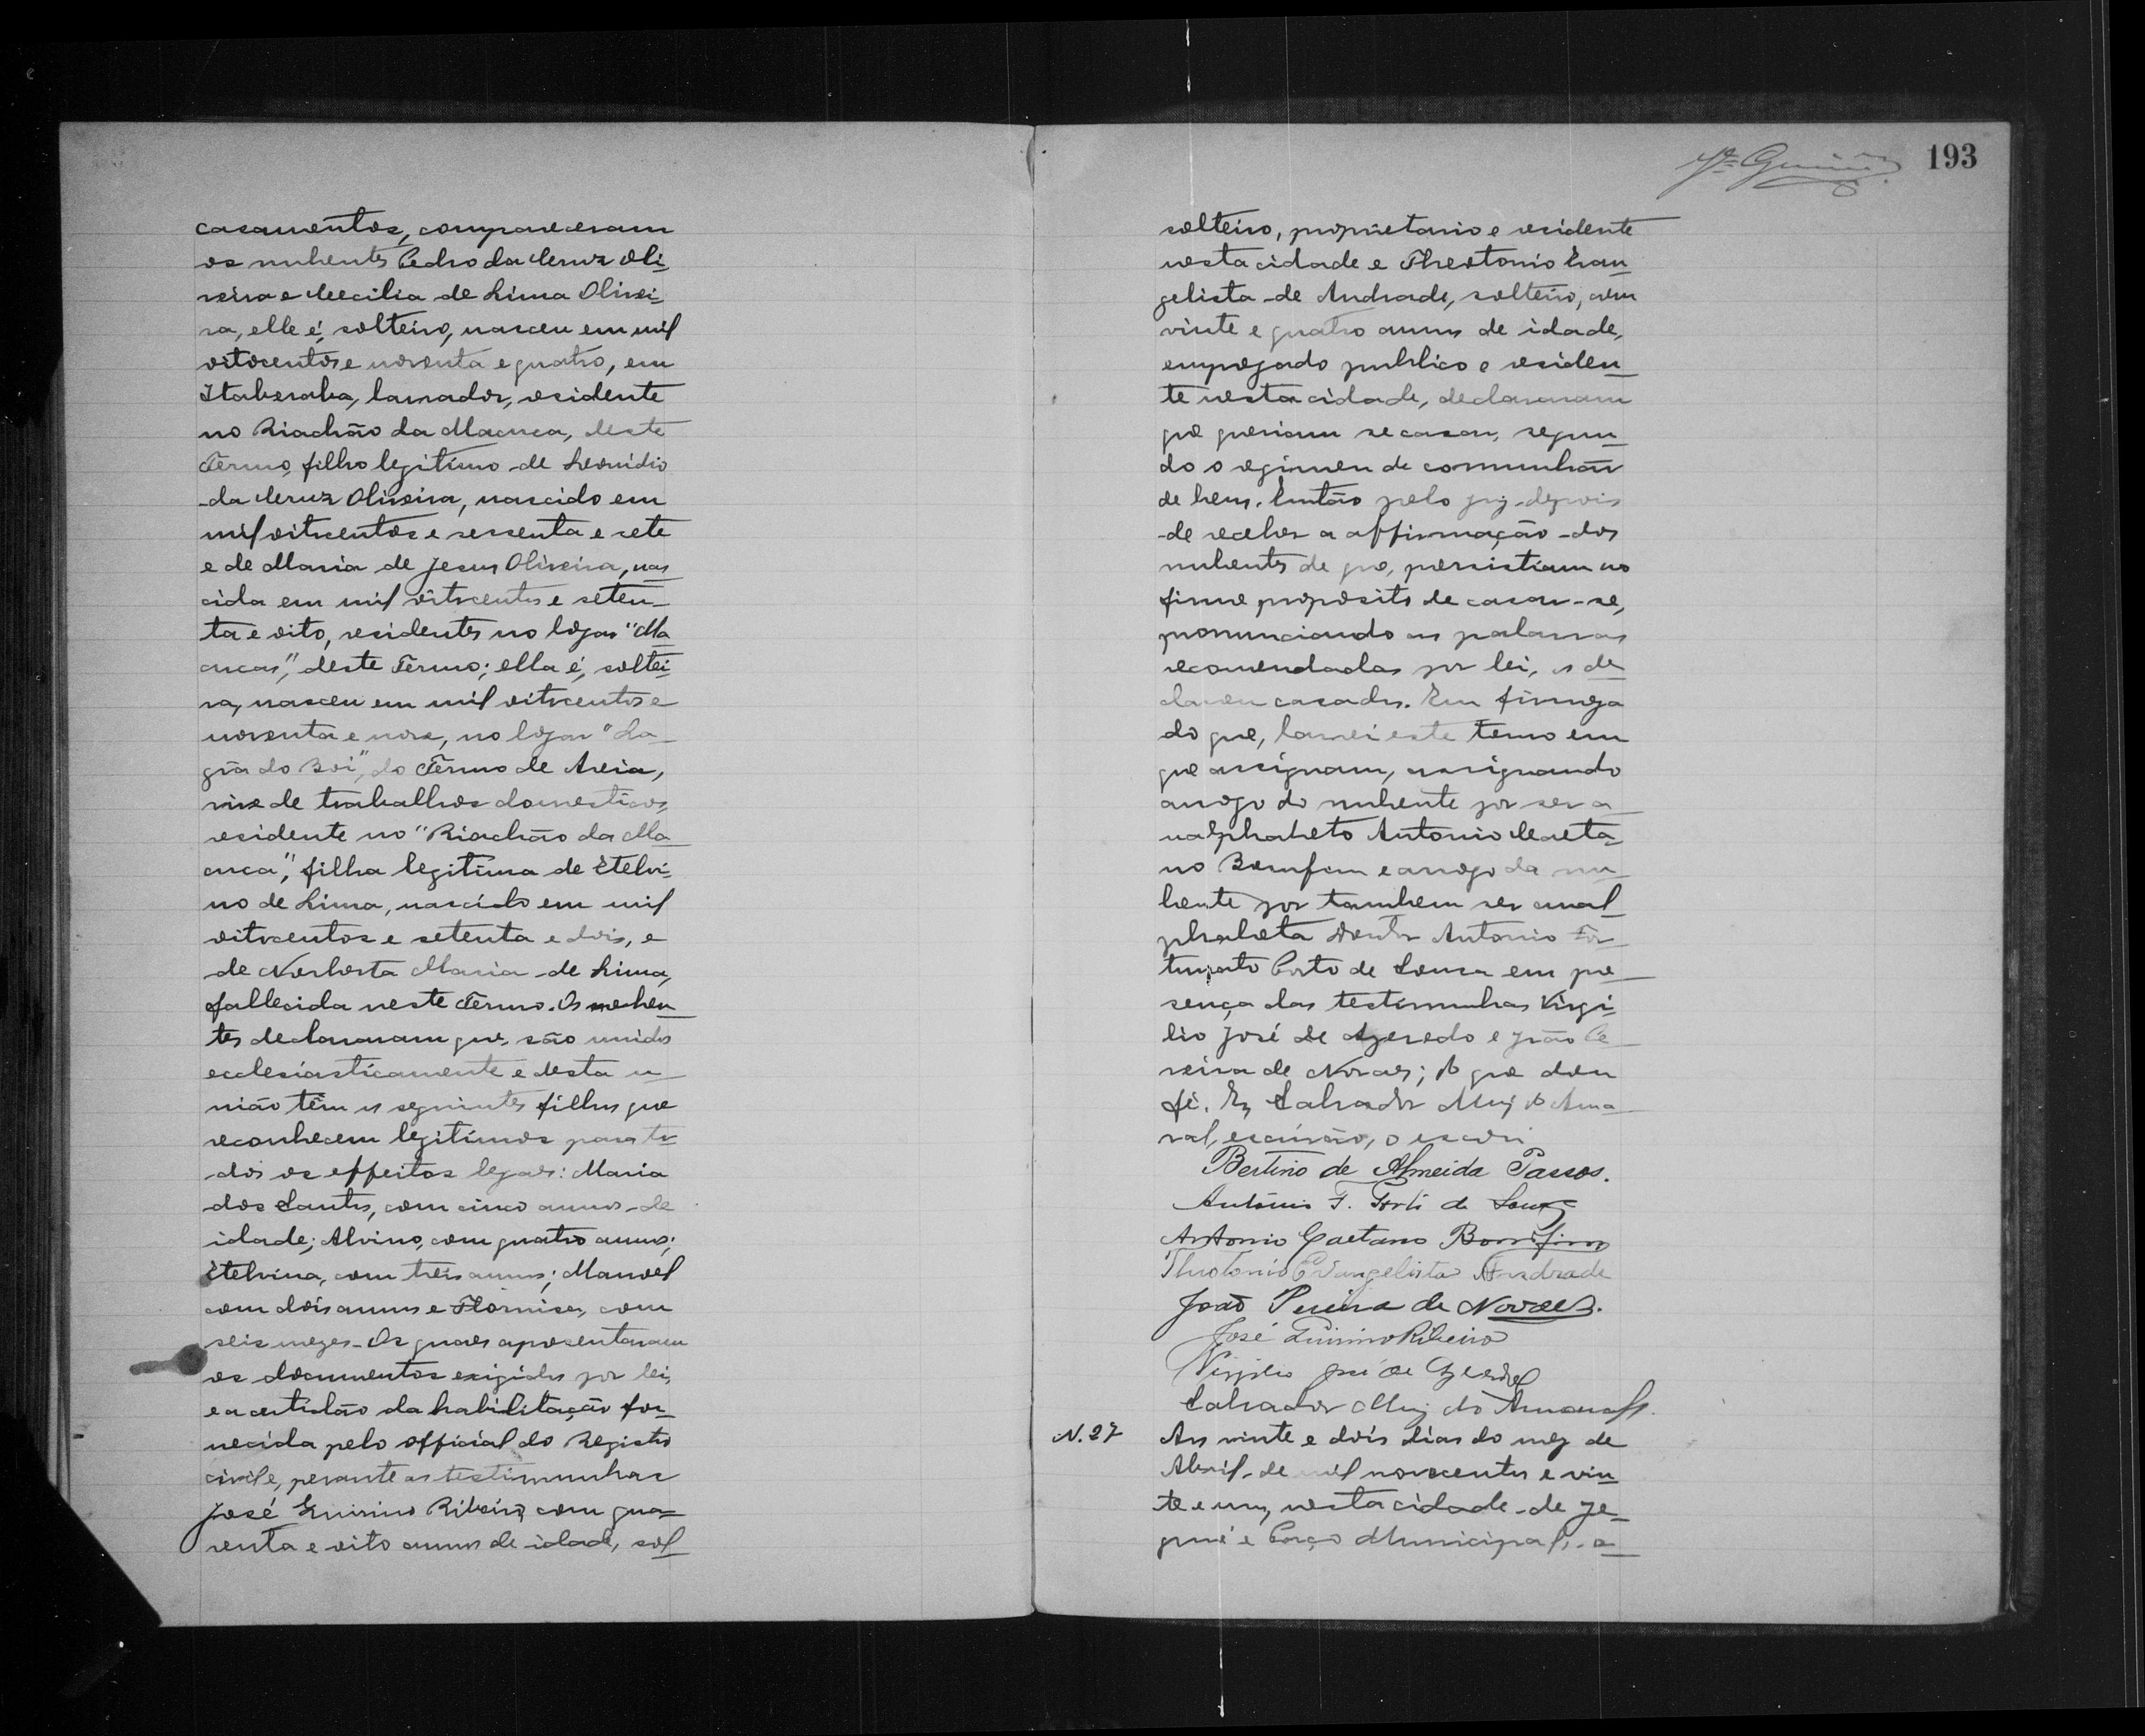 casamentos, compareceram
os nubentes Pedro da Cruz Oli-
veira e Cecilia de Lima Olivei-
ra, elle é, solteiro, nasceu em mil
oitocentos e noventa e quatro, em
Itaberaba, lavrador, residente
no Riachão da Macuca, deste
Termo, filho legitimo de Leonidio
da Cruz Oliveira, nascido em
mil oitocentos e sessenta e sete
e de Maria de Jesus Oliveira, nas
cida em mil oitocentos e seten-
ta e oito, residentes no logar "Ma
cucas", deste Termo; ella é, soltei-
ra, nasceu em mil oitocentos e
noventa e nove, no logar "La-
gôa do Boi", do Termo de Areia,
vive de trabalhos domesticos,
residente no "Riachão da Ma
cuca", filha legitima de Etelvi-
no de Lima, nascido em mil
oitocentos e setenta e dois, e
de Norberta Maria de Lima,
fallecida neste Termo. Os nuben
tes declararam que, são unidos
ecclesiasticamente e desta u-
nião têm os seguintes filhos que
reconhecem legitimos para to-
dos os effeitos legaes: Maria
dos Santos, com cinco annos de
idade; Alvino, com quatro annos;
Etelvina, com treis annos; Manoel
com dois annos e Florniza, com
seis mezes. Os quaes apresentaram
os documentos exigidos por lei,
e a certidão da habilitação for-
necida pelo official do Registro
civil e, perante as testimunhas
José Quirino Ribeiro, com qua-
renta e oito annos de idade, sol
193
solteiro, proprietario e residente
nesta cidade e Theotonio Evan-
gelista de Andrade, solteiro, com
vinte e quatro annos de idade,
empregado publico e residen-
te nesta cidade, declararam
que queriam se casar, segun-
do o regimen de communhão
de bens. Então pelo juiz, depois
de receber a affirmação dos
nubentes de que, persistiam no
firme proposito de casar-se,
pronunciando as palavras
recomendadas por lei, os de
clarou casados. Em firmeza
do que, lavrei este termo em
que assignam, assignando
arrogo do nubente por ser a-
nalphabeto Antonio Caeta-
no Bomfim e arrogo da nu-
bente por tambem ser anal-
phabeta Doutor Antonio For-
tunato Porto de Souza em pre-
sença das testimunhas Virgi-
lio José de Azevedo e João Pe-
reira de Novaes; do que dou
fé. Eu Salvador Muniz do Ama-
ral, escrivão, o escrevi
Bertino de Almeida Passos.
Antonio F. Porto de Souza
Antonio Caetano Bomfim
Theotonio Evangelista Andrade
João Pereira de Novaes.
José Quirino Ribeiro
Virgilio José de Azevedo
Salvador Muniz do Amaral.
N. 27
Aos vinte e dois dias do mez de
Abril de mil novecentos e vin-
te e um, nesta cidade de Je-
quié e Paço Municipal, a-